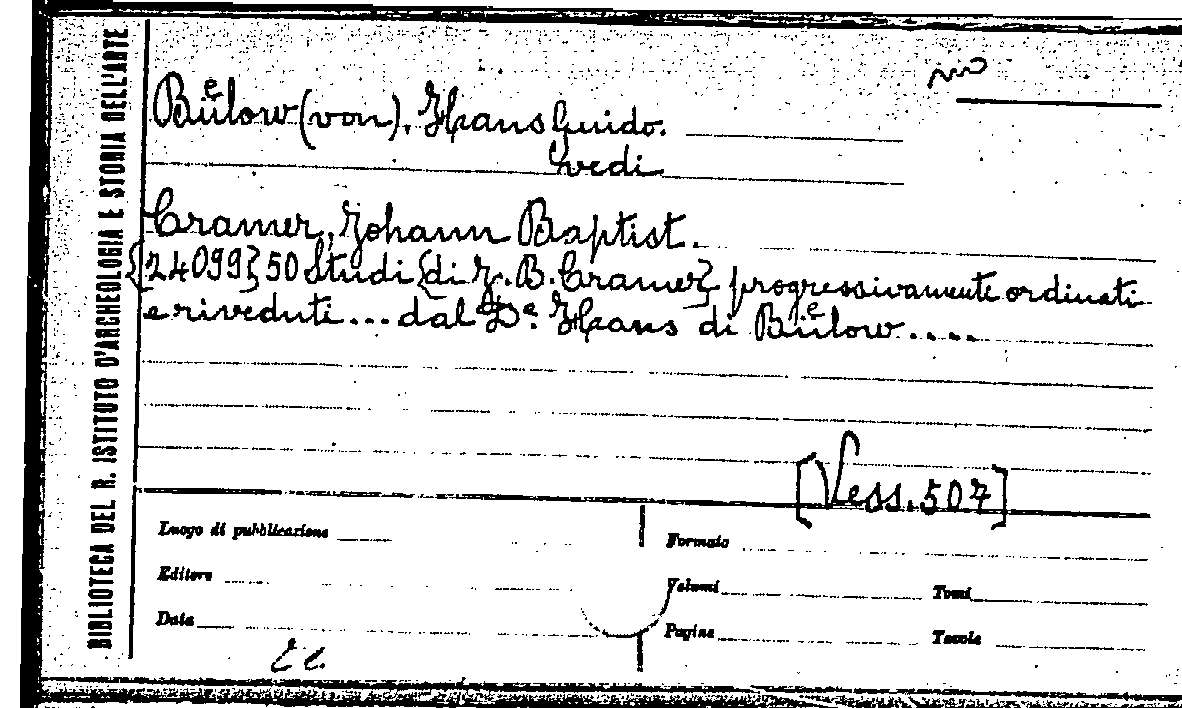 BIBLIOTECA DEL R. ISTITUTO D'ARCHEOLOGIA E STORIA DELL'ARTE
Büelow (von), Hans Guido.
vedi
Cramer, Johann Baptist.
{24099} 50 Studi {di J. B. Cramer} progressivamente ordinati
e riveduti... dal De. Hans di Büelow....
[Vess. 507]
Luogo di pubblicazione
Formato
Editore
Volumi
Tomi
Data
Pagine
Tavole